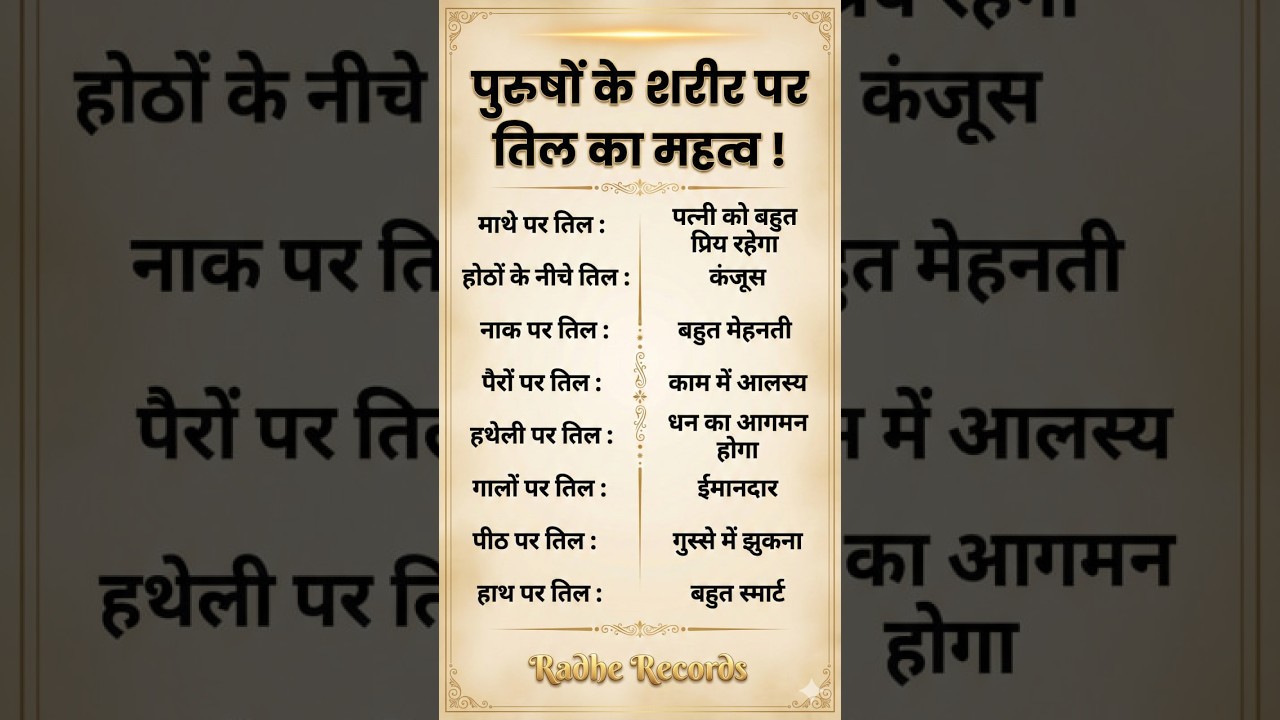 पुरुषों के शरीर पर
तिल का महत्व !
माथे पर तिल : पत्नी को बहुत
प्रिय रहेगा
होठों के नीचे तिल : कंजूस
नाक पर तिल : बहुत मेहनती
पैरों पर तिल : काम में आलस्य
हथेली पर तिल : धन का आगमन
होगा
गालों पर तिल : ईमानदार
पीठ पर तिल : गुस्से में झुकना
हाथ पर तिल : बहुत स्मार्ट
Radhe Records